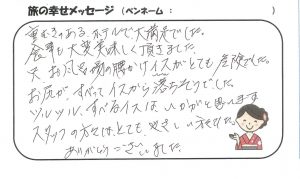 旅の幸せメッセージ (ペンネーム：　　　)
重むきのある、ホテルで大満足でした。
食事も大変美味しく頂きました。
天 お風呂場の腰かけイスがとても危険でした。
お尻が、すべってイスから落ちそうでした。
ツルツル、すべるイスはいかがと思います
スタッフの方々は、とても、やさしい方々でした。
ありがとうございました。